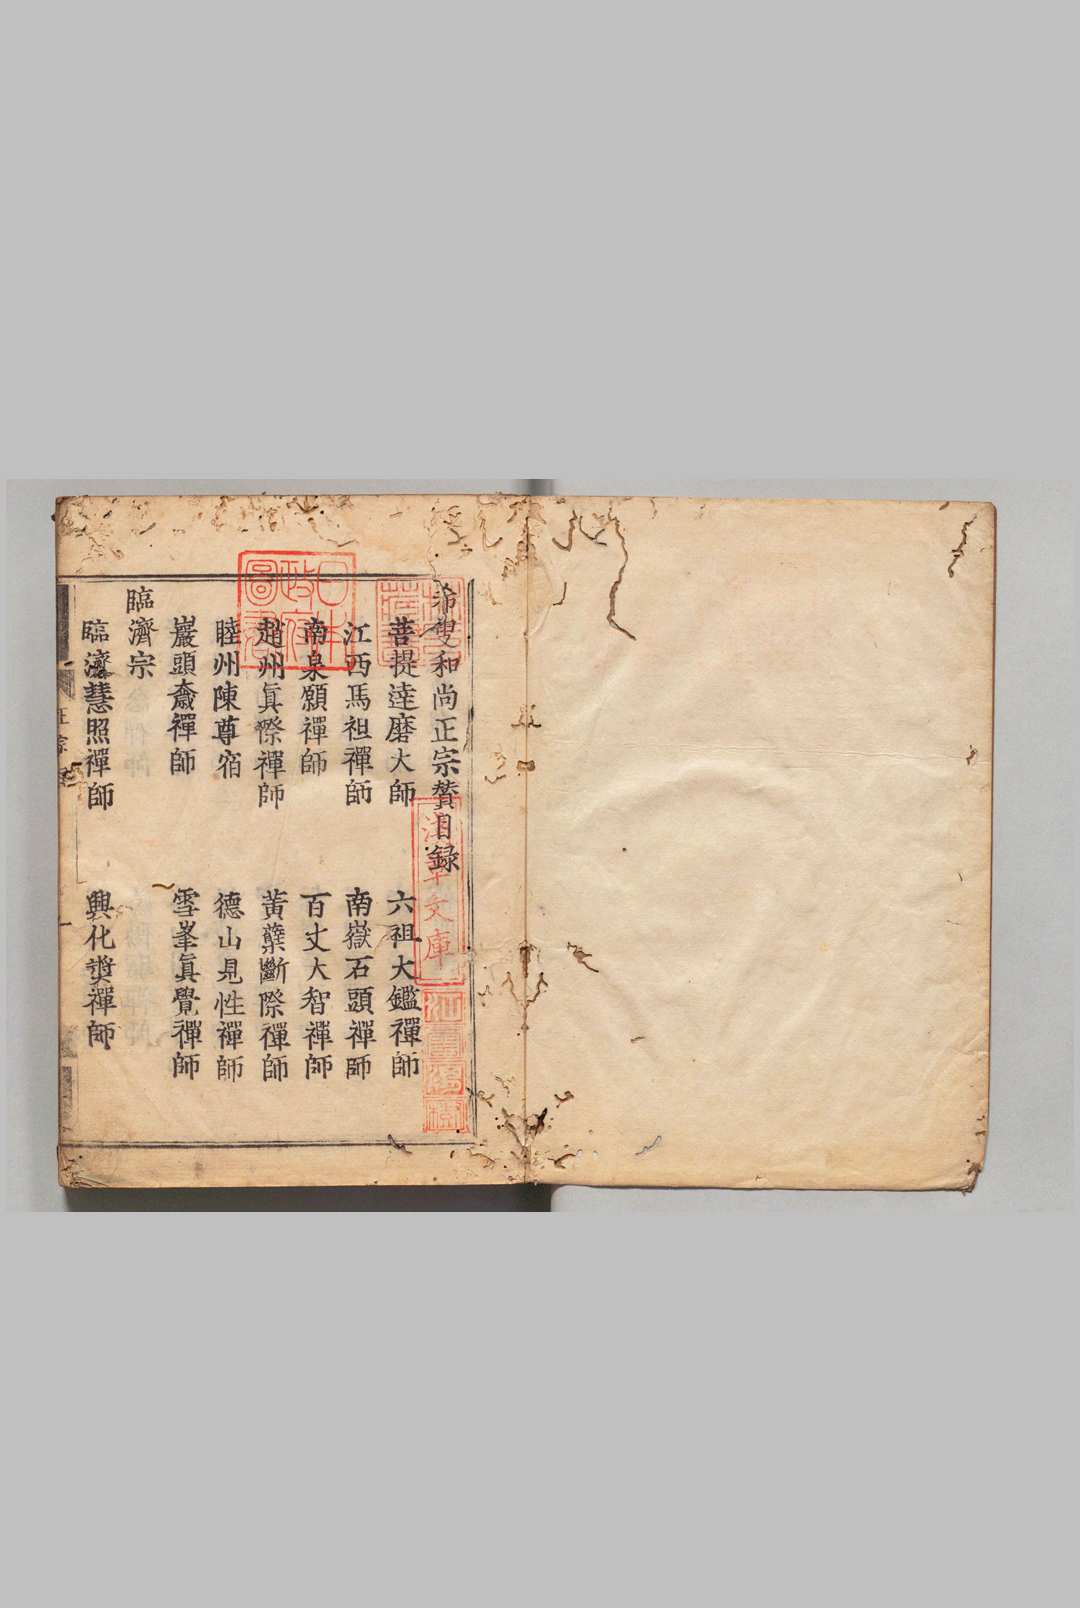 希叟和尚正宗贊目録
菩提達磨大師 六祖大鑑禪師
江西馬祖禪師 南嶽石頭禪師
南泉願禪師 百丈大智禪師
趙州真際禪師 黃蘗斷際禪師
睦州陳尊宿 德山見性禪師
巖頭奯禪師 雪峯真覺禪師
臨濟宗
臨濟慧照禪師 興化獎禪師
日本政府圖書
淺草文庫